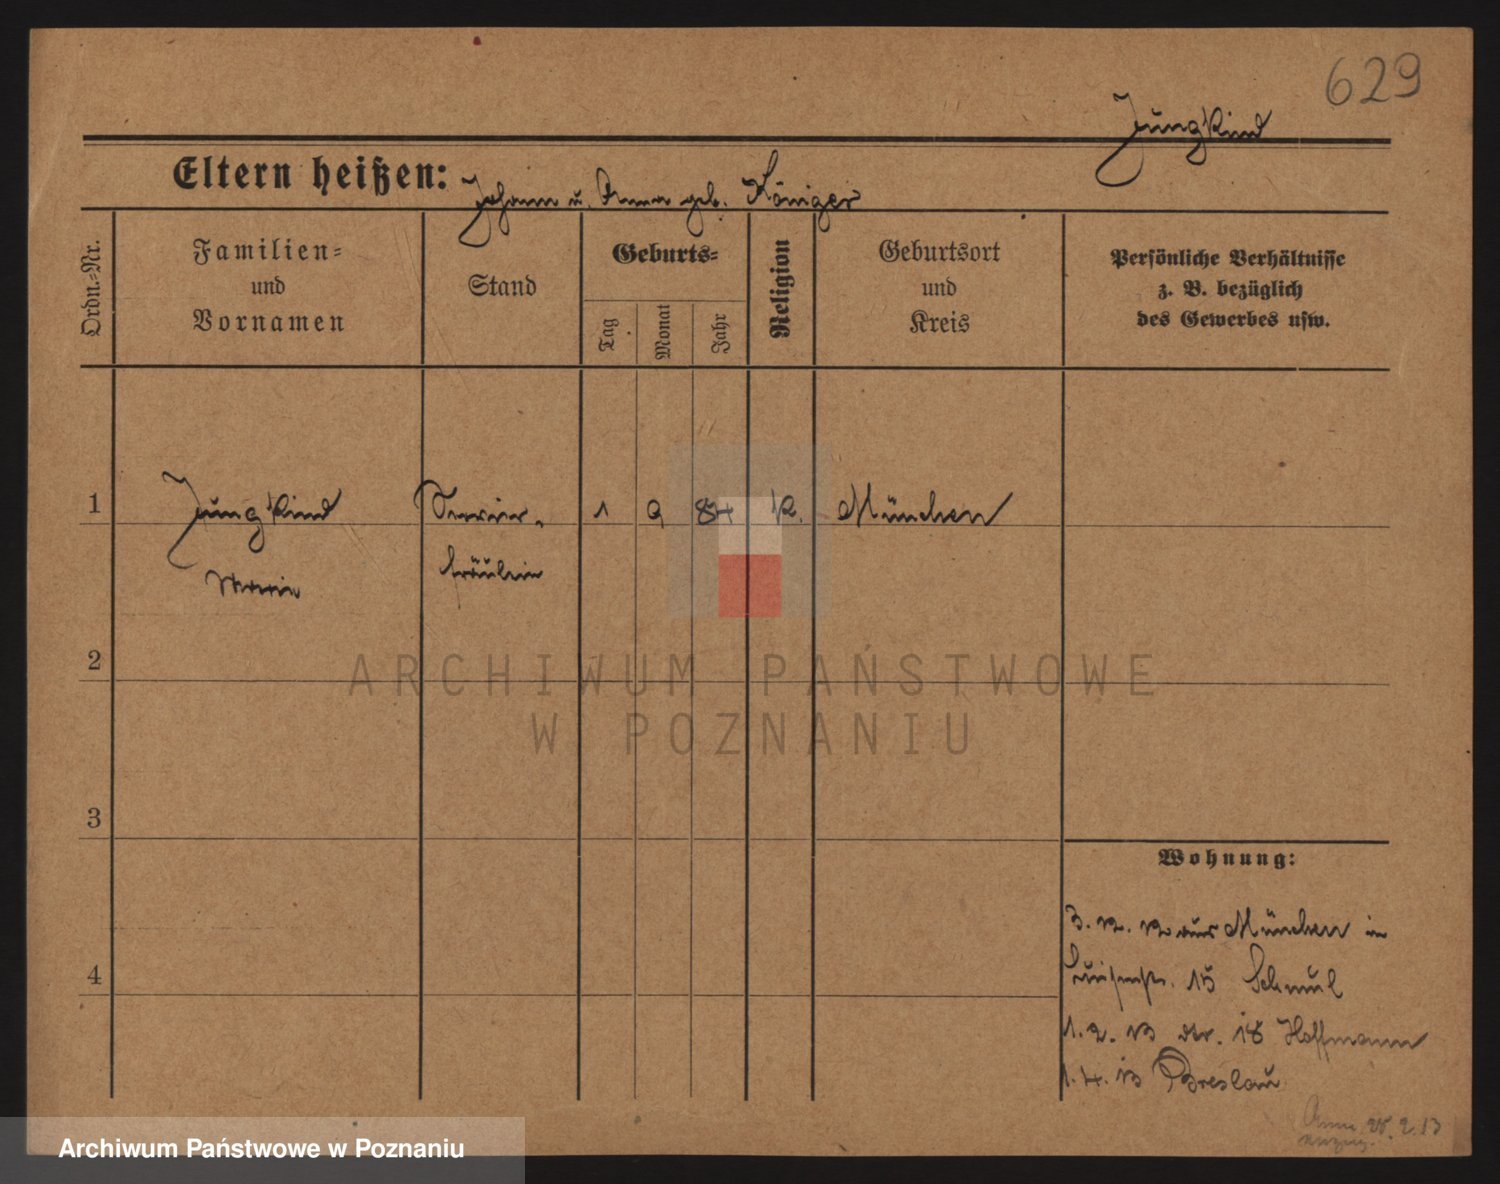 629
Jungkind
Eltern heißen: Johann u. Anna geb. Königer
Ordn.-Nr.
Familien- und Vornamen
Stand
Geburts-
Tag
Monat
Jahr
Religion
Geburtsort und Kreis
Persönliche Verhältnisse
z. B. bezüglich
des Gewerbes usw.
1 Jungkind Servier- 1 9 84 K. München
Marie fräulein
2
3
4
Wohnung:
3. 12. 12 aus München in
Luisenstr. 15 Schmul
1. 2. 13 dto. 18 Hoffmann
1. 4. 13 Breslau
2. 13
ARCHIWUM PAŃSTWOWE
W POZNANIU
Archiwum Państwowe w Poznaniu